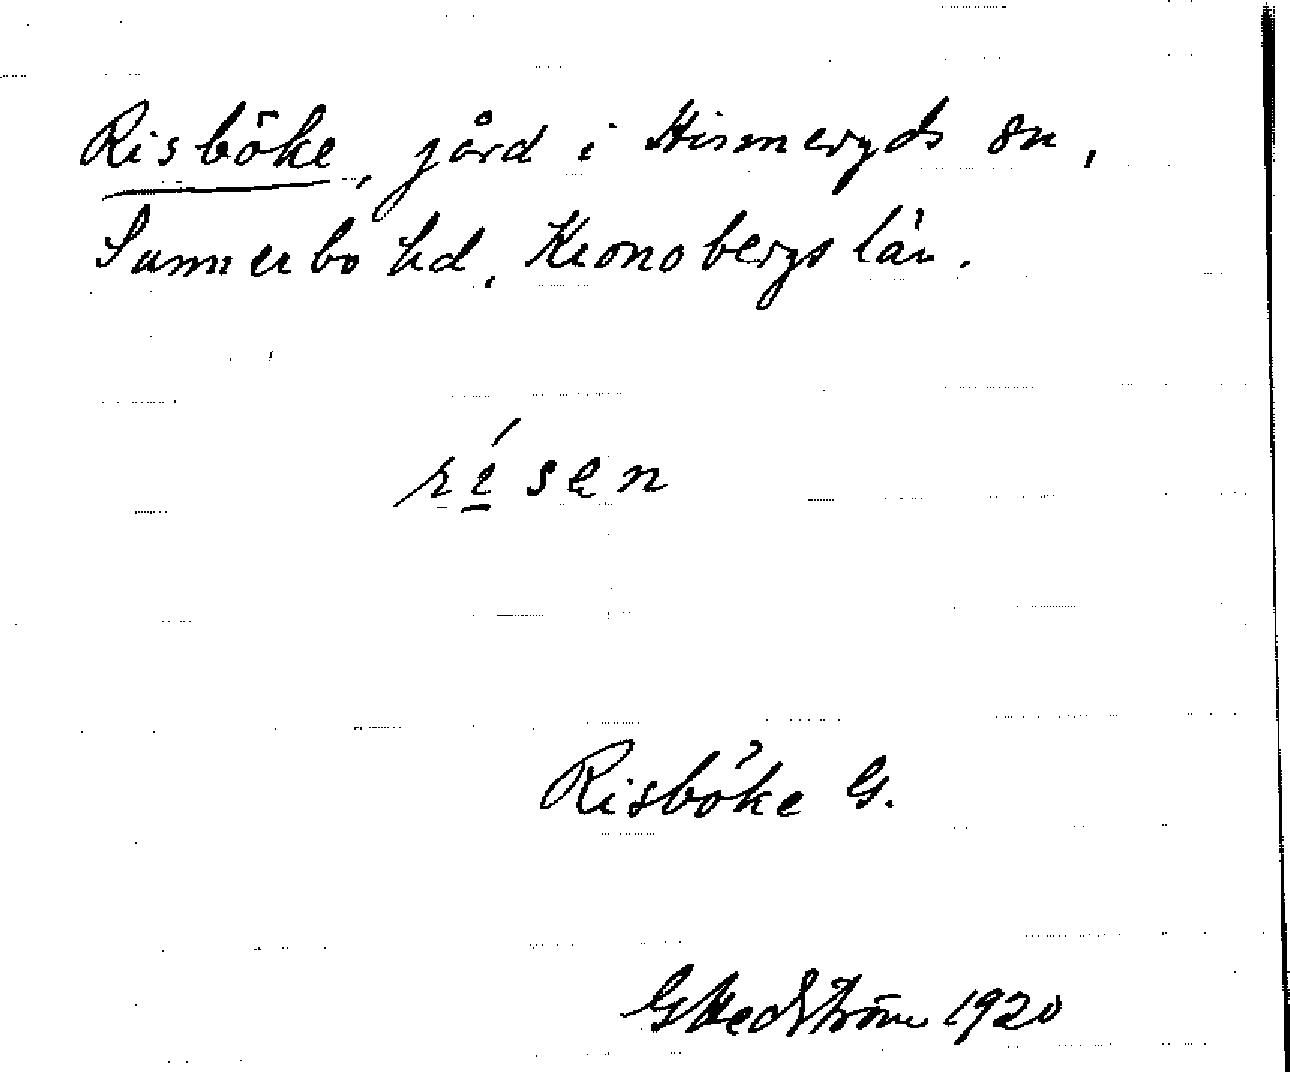 Risböke, gård i Hinneryds sn,
Sunnerbo hd, Kronobergs län.
rísen
Risböke G.
G Hedström 1920